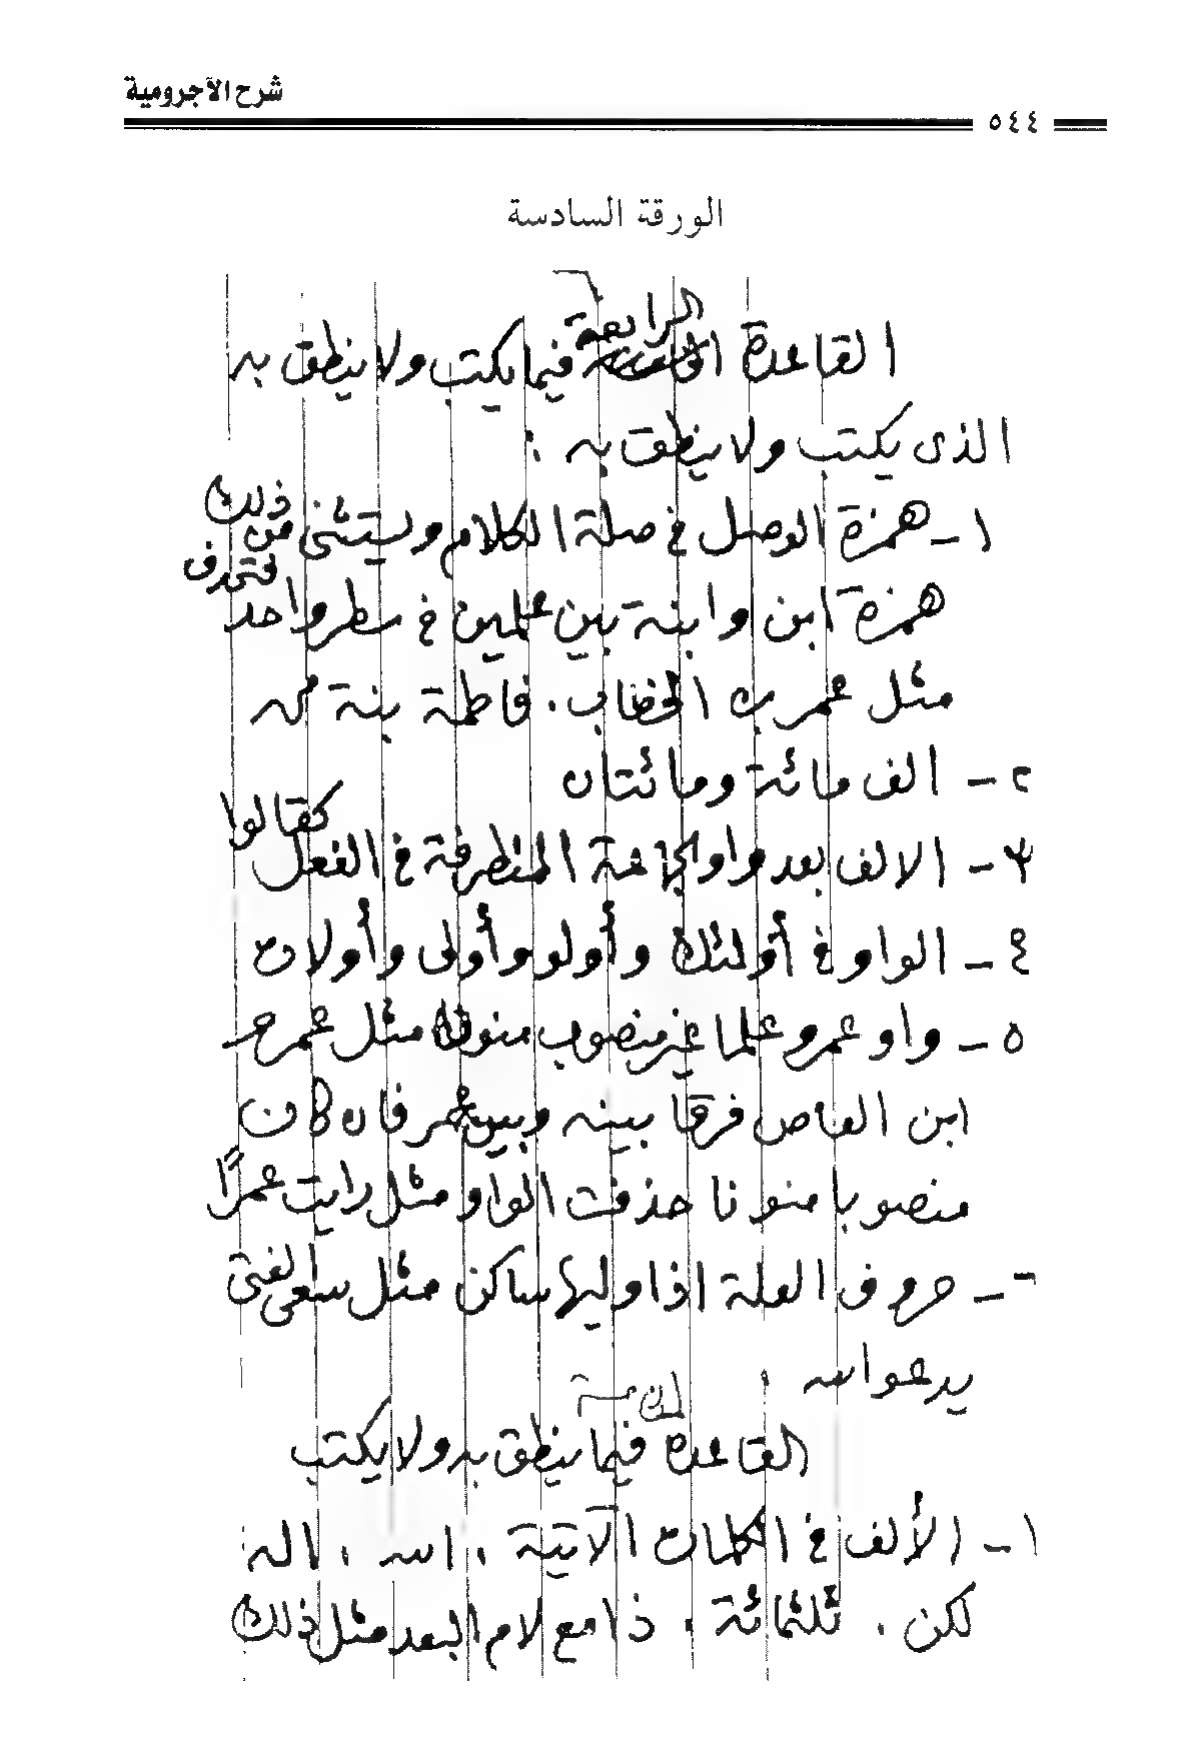 شرح الآجرومية
٥٤٤
الورقة السادسة
القاعدة الرابعة فيما يكتب ولا ينطق به
الذى يكتب ولا ينطق به :
١ - همزة الوصل في صلة الكلام ويستثنى من ذلك
همزة ابن وابنة بين علمين في سطر واحد فتحذف
مثل عمر بن الخطاب . فاطمة بنة محمد
٢ - الف مائة ومائتان
٣ - الالف بعد واو الجماعة المتطرفة في الفعل كقالوا
٤ - الواو في أولئك وأولو وأولى وأولات
٥ - واو عمرو علما غير منصوب منون مثل عمرو
ابن العاص فرقا بينه وبين عمر فان كان
منصوبا منونا حذفت الواو مثل رايت عمرًا
٦ - حروف العلة اذا وليها ساكن مثل سعى الفتى
يدعو الله .
القاعدة الخامسة فيما ينطق به ولا يكتب
١ - الألف في الكلمات الآتية . الله . اله
لكن . ثلثمائة . ذا مع لام البعد مثل ذلك